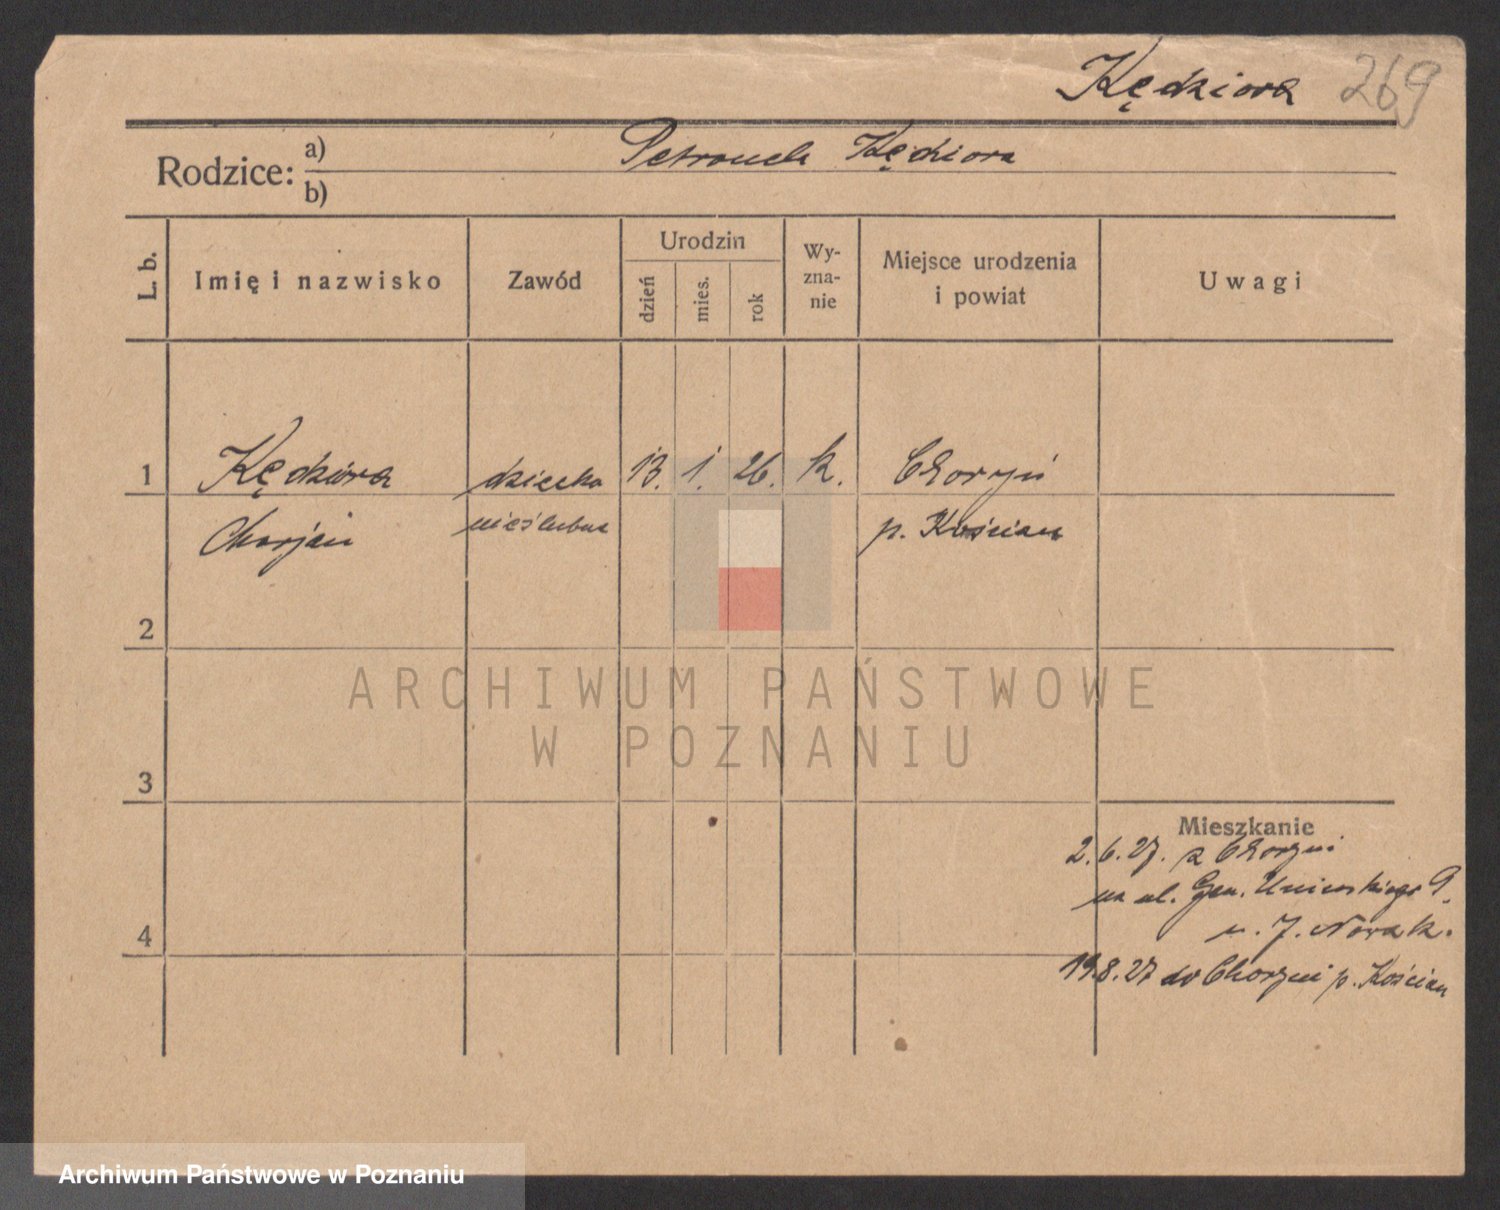 Kędziora 269
Rodzice: a) Petronela Kędziora
b)
L. b.
Imię i nazwisko
Zawód
Urodzin
dzień
mies.
rok
Wy-
zna-
nie
Miejsce urodzenia
i powiat
Uwagi
1 Kędziora dziecko 13. 1. 26. k. Choryń
Marjan nieślubne p. Kościan
2
3
4
Mieszkanie
2.6.27. z Choryni
na ul. Gen. 9.
u. J. Nowak.
19.8.27 do Choryni p. Kościan
ARCHIWUM PAŃSTWOWE
W POZNANIU
Archiwum Państwowe w Poznaniu